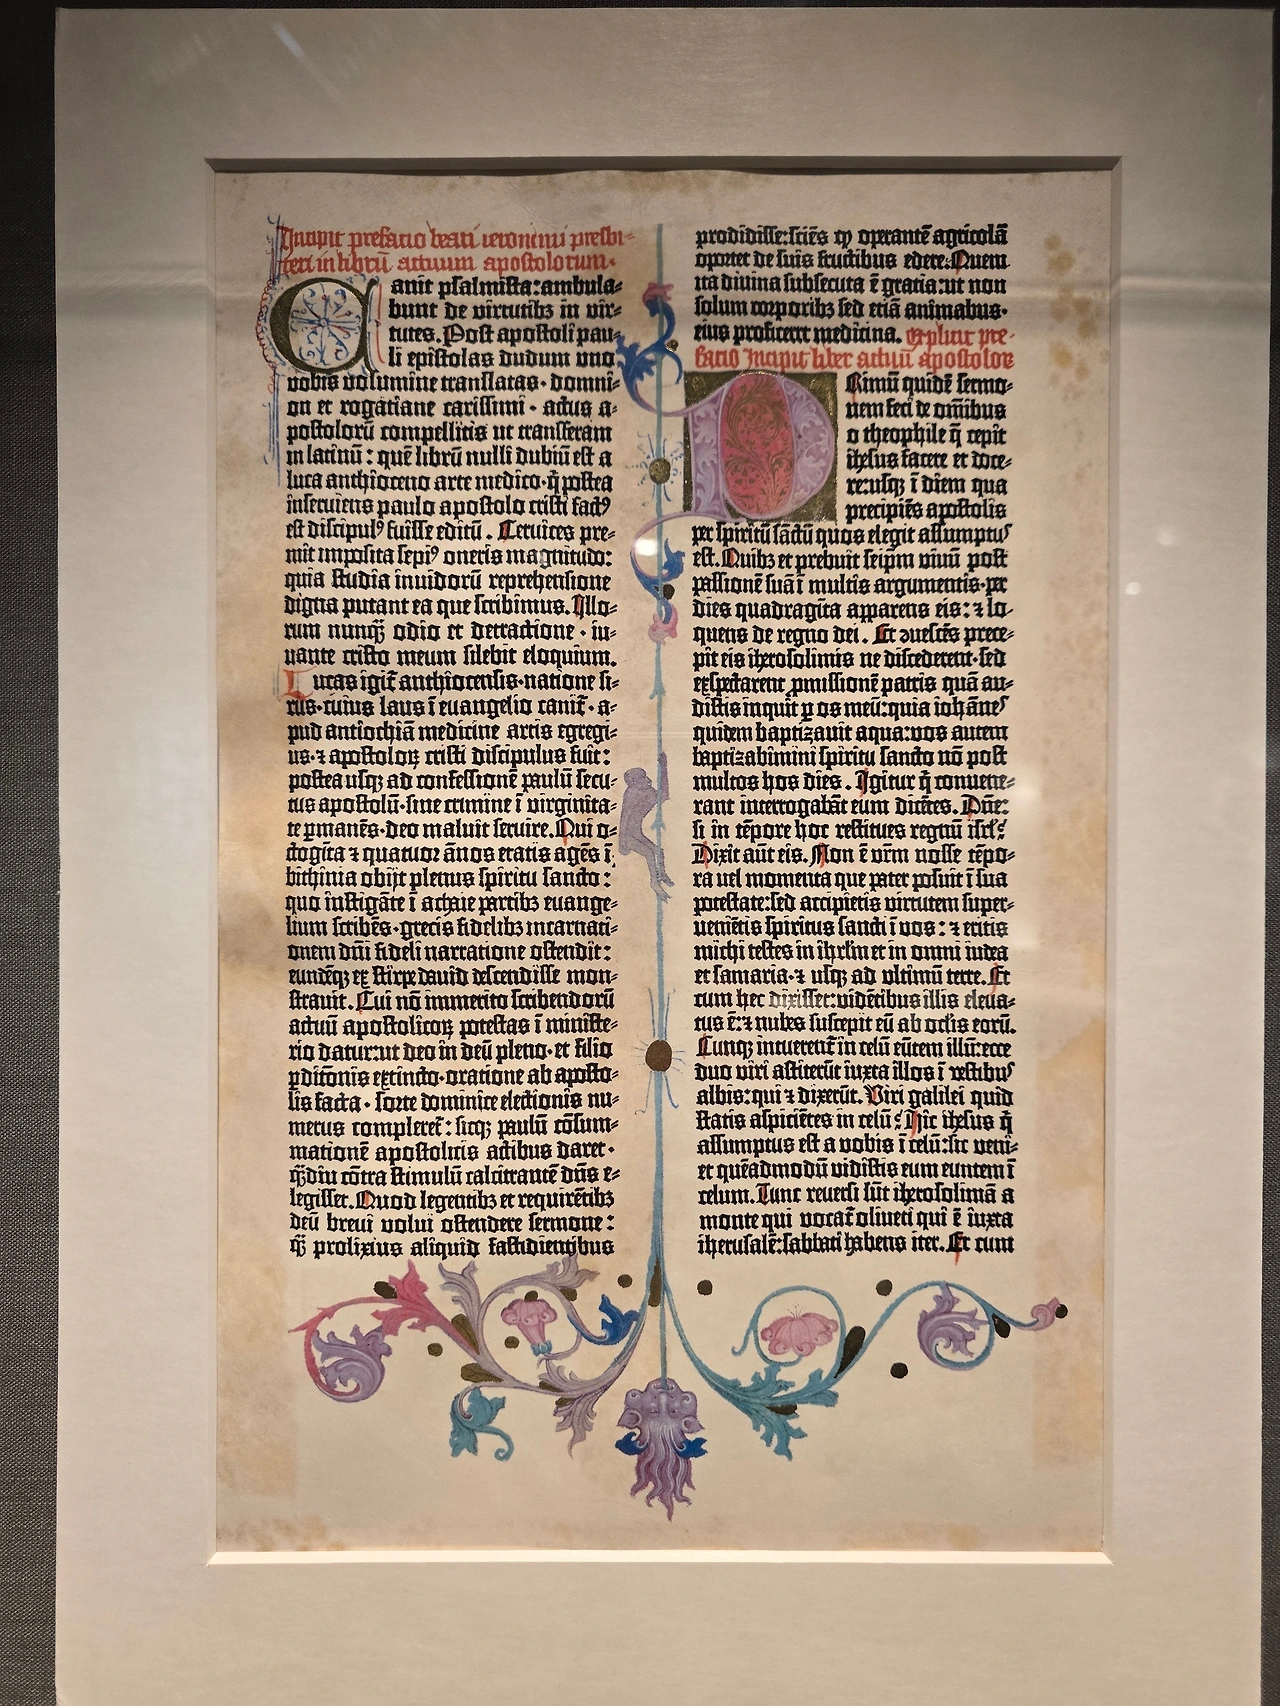 Incipit prefacio beati ieronimi presbi-
teri in librū actuum apostolorum.
Canit psalmista: ambula-
bunt de virtutibꝫ in vir-
tutes. Post apostoli pau-
li epistolas dudum uno
vobis volumine translatas· domni-
on et rogatiane carissimi· actus a-
postolorū compellitis ut transferam
in latinū: quē librū nulli dubiū est a
luca anthioceno arte medico·q̄ postea
inserviens paulo apostolo cristi factꝰ
est discipulꝰ fuisse editū. Cervices pre-
mit imposita sepiꝰ oneris magnitudo:
quia studia invidorū reprehensione
digna putant ea que scribimus. Illo-
rum nunqꝫ odio et detractione· iu-
vante cristo meum silebit eloquium.
Lucas igit᷑ anthiocensis·natione si-
rus·cuius laus ī evangelio canit᷑· a-
pud antiochiā medicine artis egregi-
us·⁊ apostoloꝝ cristi discipulus fuit:
postea usqꝫ ad confessionē paulū secu-
tus apostolū·sine crimine ī virginita-
te ꝑmanēs·deo maluit servire. Qui o-
ctogīta ⁊ quatuor ānos etatis agēs ī
bithinia obijt plenus spiritu sancto:
quo instigāte ī achaie partibꝫ evange-
lium scribēs·grecis fidelibꝫ incarnati-
onem dn̄i fideli narratione ostendit:
eundēqꝫ ex stirpe david descendisse mon-
stravit. Cui nō immerito scribendorū
actuū apostolicoꝝ potestas ī ministe-
rio datur:ut deo in deū pleno·et filio
ꝑditōnis extincto·oratione ab aposto-
lis facta· sorte dominice electionis nu-
merus compleret᷑: sicqꝫ paulū cōsum-
mationē apostolicis actibus daret·
q̄ꝫdiu cōtra stimulū calcitrantē dn̄s e-
legisset. Quod legentibꝫ et requirētibꝫ
deū brevi volui ostendere sermone:
q̄ꝫ prolixius aliquid fastidientibus
prodidisse:sciēs ꝙ operantē agricolā
oportet de suis fructibus edere. Quem
ita divina subsecuta ē gratia:ut non
solum corporibꝫ sed etiā animabus·
eius proficeret medicina. Explicit pre-
facio Incipit liber actuū apostoloꝝ
Primū quidē sermo-
nem feci de om̄ibus
o theophile q̄ cepit
ihesus facere et doce-
re:usqꝫ ī diem qua
precipiēs apostolis
per spiritū sāctū quos elegit assumptus
est. Quibꝫ et prebuit seip̄m vivū post
passionē suā ī multis argumentis·per
dies quadragīta apparens eis: ⁊ lo-
quens de regno dei. Et ↄvescēs prece-
pit eis iherosolimis ne discederent·sed
expectarent ꝓmissionē patris quā au-
distis inquit ꝑ os meū:quia iohānes
quidem baptizavit aqua:vos autem
baptizabimini spiritu sancto nō post
multos hos dies. Igitur q̄ convene-
rant interrogabāt eum dicētes. Dn̄e:
si in tēpore hoc restitues regnū isrl̄?
Dixit aūt eis. Non ē vr̄m nosse tēpo-
ra vel momenta que pater posuit ī sua
potestate:sed accipietis virtutem super-
veniētis spiritus sancti ī vos: ⁊ eritis
michi testes in ihrl̄m et in omni iudea
et samaria·⁊ usqꝫ ad ultimū terre. Et
cum hec dixisset:vidētibus illis eleva-
tus ē:⁊ nubes suscepit eū ab oclis eorū.
Cunqꝫ intuerent᷑ in celū eūtem illū:ecce
duo viri astiterūt iuxta illos ī vestibus
albis:qui ⁊ dixerūt. Viri galilei quid
statis aspiciētes in celū? Hic ihesus q̄
assumptus est a vobis ī celū:sic veni-
et quēadmodū vidistis eum euntem ī
celum. Tunc reversi sūt iherosolimā a
monte qui vocat᷑ oliveti qui ē iuxta
iherusalē:sabbati habens iter. Et cum